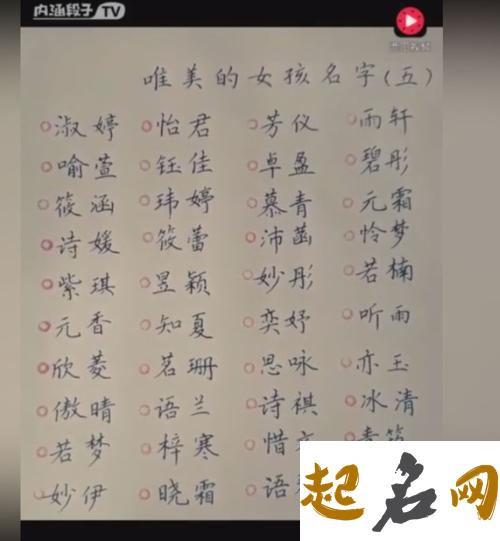 内涵段子TV
唯美的女孩名字(五)
淑婷 怡君 芳仪 雨轩
喻萱 钰佳 卓盈 碧彤
筱涵 玮婷 慕青 元霜
诗媛 筱蕾 沛菡 怜梦
紫琪 昱颖 妙彤 若楠
元香 知夏 奕妤 听雨
欣菱 茗珊 思咏 亦玉
傲晴 语兰 诗祺 冰清
若梦 梓寒 惜
妙伊 晓霜 语
起名网